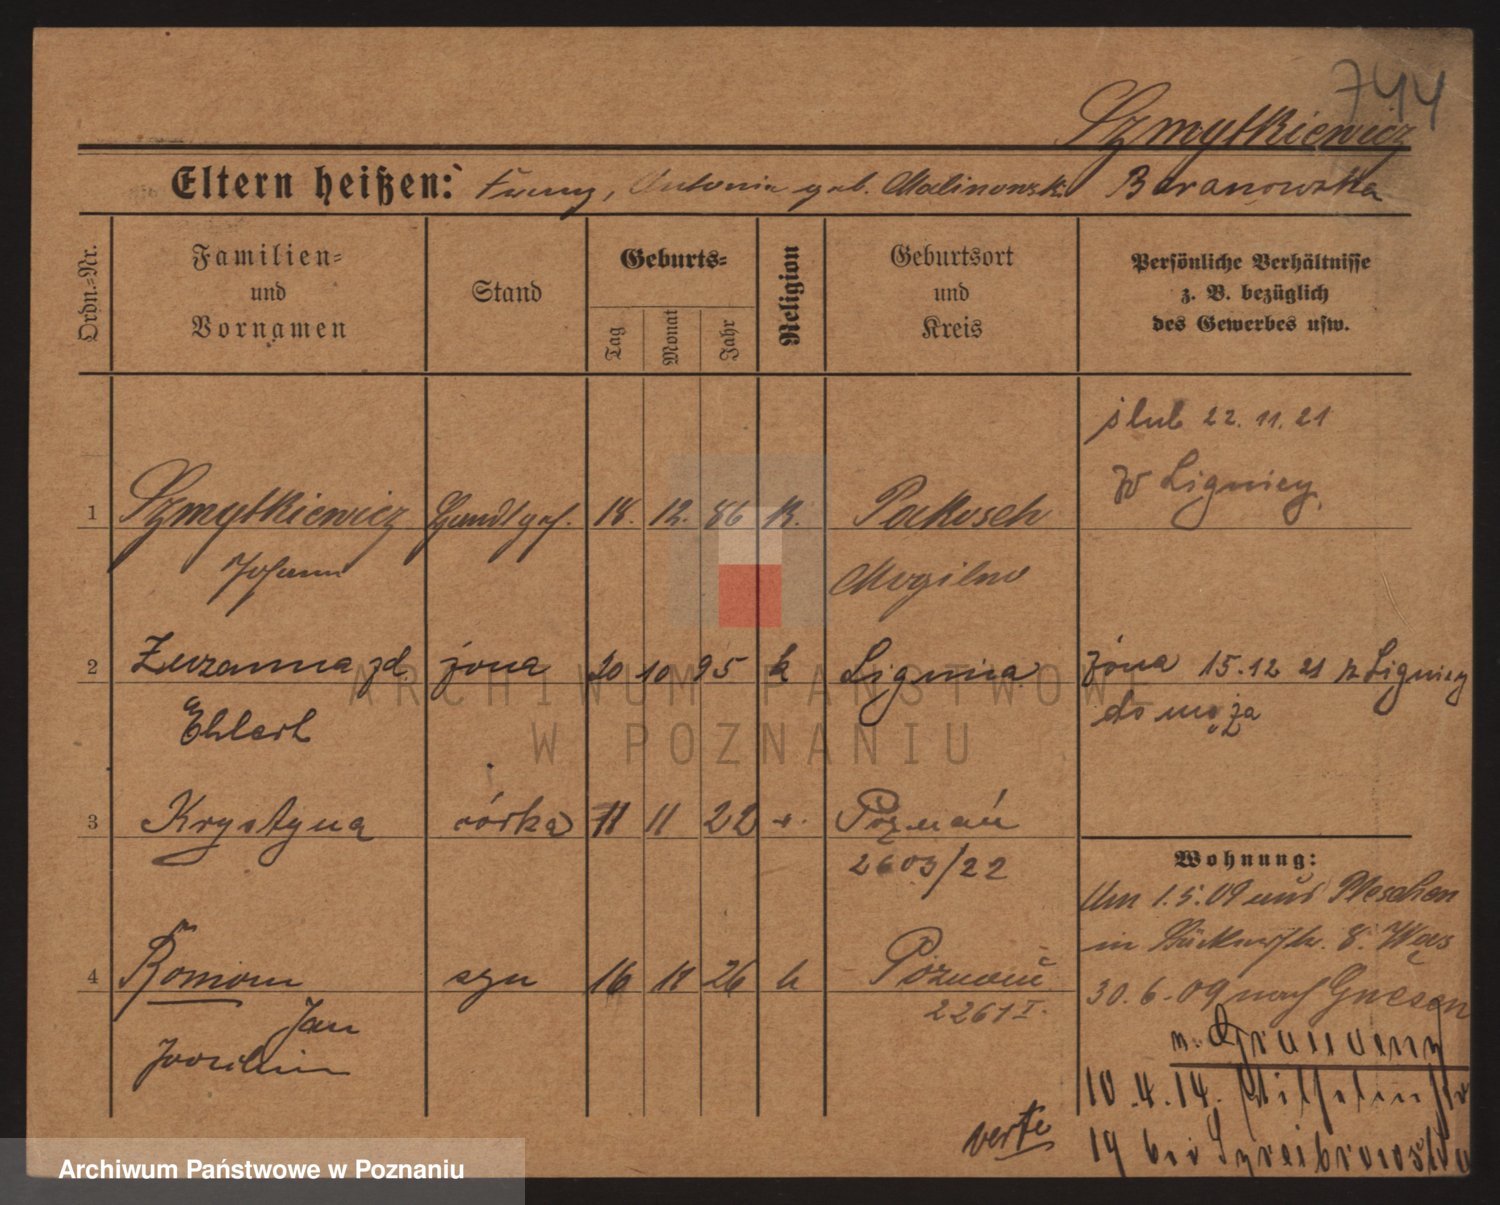 744
Szmytkiewicz
Eltern heißen: Franz, Antonie geb. Malinowsk. Baranowska
Ordn.-Nr.
Familien-
und
Vornamen
Stand
Geburts-
Tag
Monat
Jahr
Religion
Geburtsort
und
Kreis
Persönliche Verhältnisse
z. B. bezüglich
des Gewerbes usw.
ślub 22. 11. 21
w Lignicy
1 Szmytkiewicz Handlgeh. 18. 12. 86 K. Pakosch
Johann Mogilno
2 Zuzanna zd żona 20 10 95 k Lignica żona 15.12 21 z Lignicy
Ehlert do męża
3 Krystyna córka 11 11 22 Poznań
2603/22
Wohnung:
Um 1.5.09 aus Pleschen
in 8. Wąs
4 Roman syn 16 11 26 k Poznań 30.6.09 nach Gnesen
2261 I.
Jan
n. Graudenz
10.4.14. Wilhelmstr
19 bei
verte
ARCHIWUM PAŃSTWOWE
W POZNANIU
Archiwum Państwowe w Poznaniu